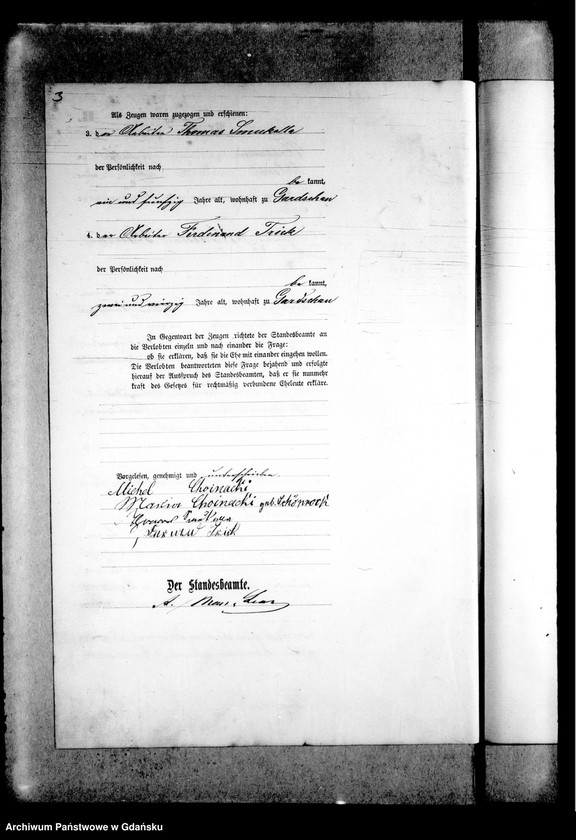 3
Als Zeugen waren zugezogen und erschienen:
3. der Arbeiter Thomas Smukalla
der Persönlichkeit nach
be kannt,
ein und fünfzig Jahre alt, wohnhaft zu Gardschau
4. der Arbeiter Ferdinand Trick
der Persönlichkeit nach
be kannt,
zwei und vierzig Jahre alt, wohnhaft zu Gardschau
In Gegenwart der Zeugen richtete der Standesbeamte an
die Verlobten einzeln und nach einander die Frage:
ob sie erklären, daß sie die Ehe mit einander eingehen wollen.
Die Verlobten beantworteten diese Frage bejahend und erfolgte
hierauf der Ausspruch des Standesbeamten, daß er sie nunmehr
kraft des Gesetzes für rechtmäßig verbundene Eheleute erkläre.
Vorgelesen, genehmigt und unterschrieben.
Michel Choinacki
Choinacki geb. Schönrock
Der Standesbeamte.
A.
Archiwum Państwowe w Gdańsku